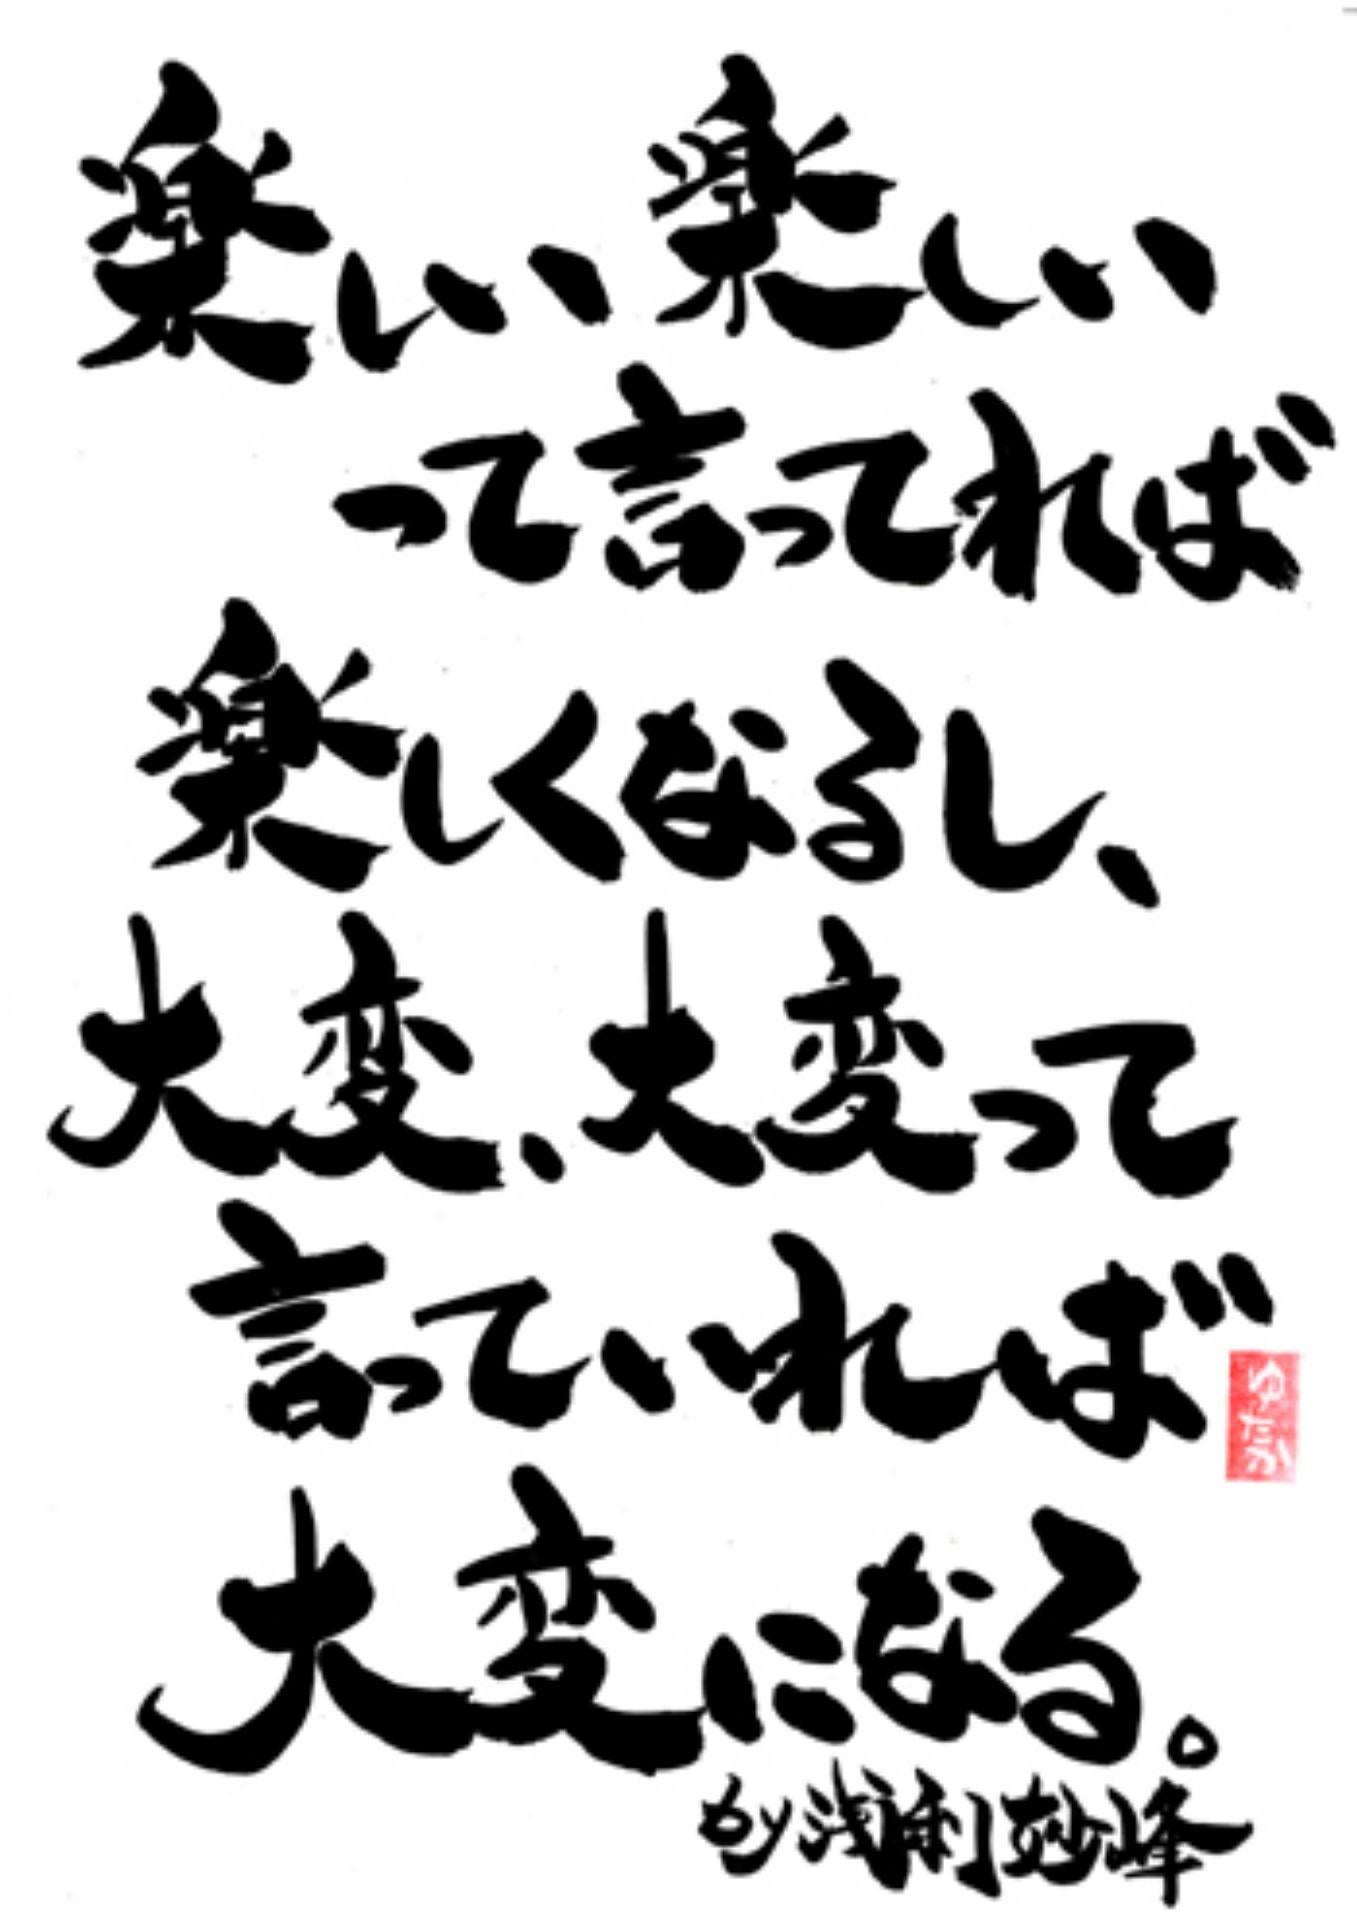 楽しい楽しい
って言ってれば
楽しくなるし、
大変、大変って
言っていれば
ゆたか
大変になる。
by浅利妙峰